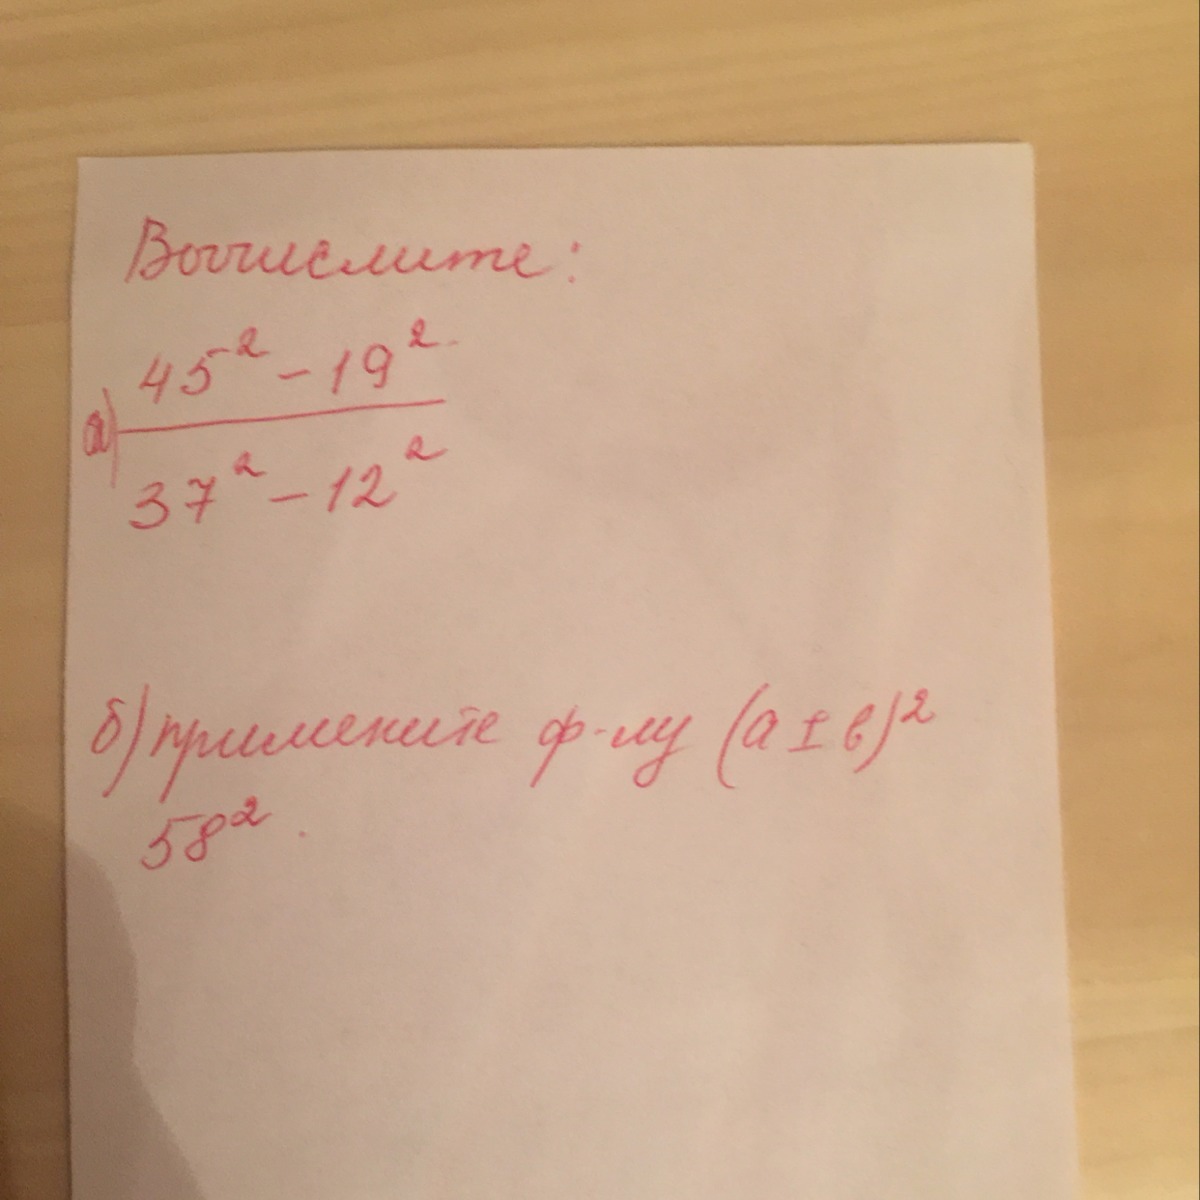 Вычислите:
45² - 19²
а)
37² - 12²
б) примените ф-лу (а ± в)²
58².